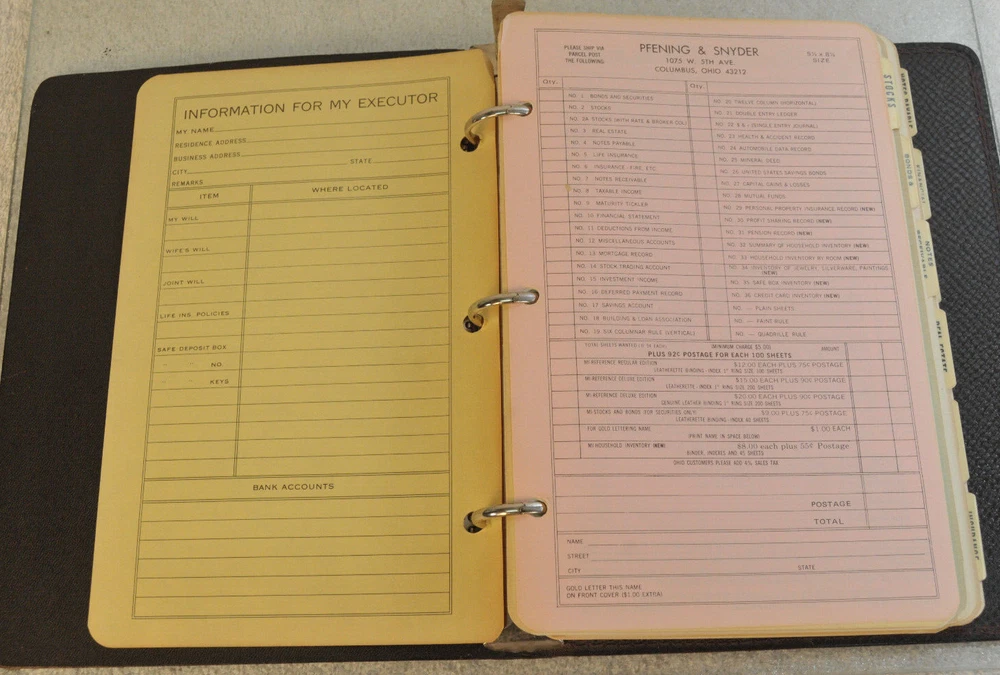 INFORMATION FOR MY EXECUTOR
MY NAME
RESIDENCE ADDRESS
BUSINESS ADDRESS
CITY STATE
REMARKS
ITEM WHERE LOCATED
MY WILL
WIFE'S WILL
JOINT WILL
LIFE INS. POLICIES
SAFE DEPOSIT BOX
" " " NO.
" " " KEYS
BANK ACCOUNTS
PLEASE SHIP VIA
PARCEL POST
THE FOLLOWING
PFENING & SNYDER
1075 W. 5TH AVE.
COLUMBUS, OHIO 43212
SIZE
Qty. Qty.
NO. 1 BONDS AND SECURITIES
NO. 2 STOCKS
NO. 2A STOCKS (WITH RATE & BROKER COL)
NO. 3 REAL ESTATE
NO. 4 NOTES PAYABLE
NO. 5 LIFE INSURANCE
NO. 6 INSURANCE - FIRE, ETC.
NO. 7 NOTES RECEIVABLE
NO. 8 TAXABLE INCOME
NO. 9 MATURITY TICKLER
NO. 10 FINANCIAL STATEMENT
NO. 11 DEDUCTIONS FROM INCOME
NO. 12 MISCELLANEOUS ACCOUNTS
NO. 13 MORTGAGE RECORD
NO. 14 STOCK TRADING ACCOUNT
NO. 15 INVESTMENT INCOME
NO. 16 DEFERRED PAYMENT RECORD
NO. 17 SAVINGS ACCOUNT
NO. 18 BUILDING & LOAN ASSOCIATION
NO. 19 SIX COLUMNAR RULE (VERTICAL)
NO. 20 TWELVE COLUMN (HORIZONTAL)
NO. 21 DOUBLE ENTRY LEDGER
NO. 22 (SINGLE ENTRY JOURNAL)
NO. 23 HEALTH & ACCIDENT RECORD
NO. 24 AUTOMOBILE DATA RECORD
NO. 25 MINERAL DEED
NO. 26 UNITED STATES SAVINGS BONDS
NO. 27 CAPITAL GAINS & LOSSES
NO. 28 MUTUAL FUNDS
NO. 29 PERSONAL PROPERTY INSURANCE RECORD (NEW)
NO. 30 PROFIT SHARING RECORD (NEW)
NO. 31 PENSION RECORD (NEW)
NO. 32 SUMMARY OF HOUSEHOLD INVENTORY (NEW)
NO. 33 HOUSEHOLD INVENTORY BY ROOM (NEW)
NO. 34 INVENTORY OF JEWELRY, SILVERWARE, PAINTINGS
(NEW)
NO. 35 SAFE BOX INVENTORY (NEW)
NO. 36 CREDIT CARD INVENTORY (NEW)
NO. — PLAIN SHEETS
NO. — FAINT RULE
NO. — QUADRILLE RULE
TOTAL SHEETS WANTED EACH) (MINIMUM CHARGE $5.00) AMOUNT
PLUS 92¢ POSTAGE FOR EACH 100 SHEETS
MI-REFERENCE REGULAR EDITION $12.00 EACH PLUS 75¢ POSTAGE
LEATHERETTE BINDING - INDEX 1" RING SIZE 100 SHEETS
MI-REFERENCE DELUXE EDITION $15.00 EACH PLUS 90¢ POSTAGE
LEATHERETTE - INDEX 1" RING SIZE 200 SHEETS
MI-REFERENCE DELUXE EDITION $20.00 EACH PLUS 90¢ POSTAGE
GENUINE LEATHER BINDING 1" RING SIZE 200 SHEETS
MI-STOCKS AND BONDS (FOR SECURITIES ONLY) $9.00 PLUS 75¢ POSTAGE
LEATHERETTE BINDING - INDEX 40 SHEETS
FOR GOLD LETTERING NAME $1.00 EACH
(PRINT NAME IN SPACE BELOW)
MI-HOUSEHOLD INVENTORY (NEW) $8.00 each plus 55¢ Postage
BINDER, INDEXES AND 45 SHEETS
OHIO CUSTOMERS PLEASE ADD 4% SALES TAX
POSTAGE
TOTAL
NAME
STREET
CITY STATE
GOLD LETTER THIS NAME
ON FRONT COVER ($1.00 EXTRA)
STOCKS
BONDS &
NOTES
REAL ESTATE
INSURANCE